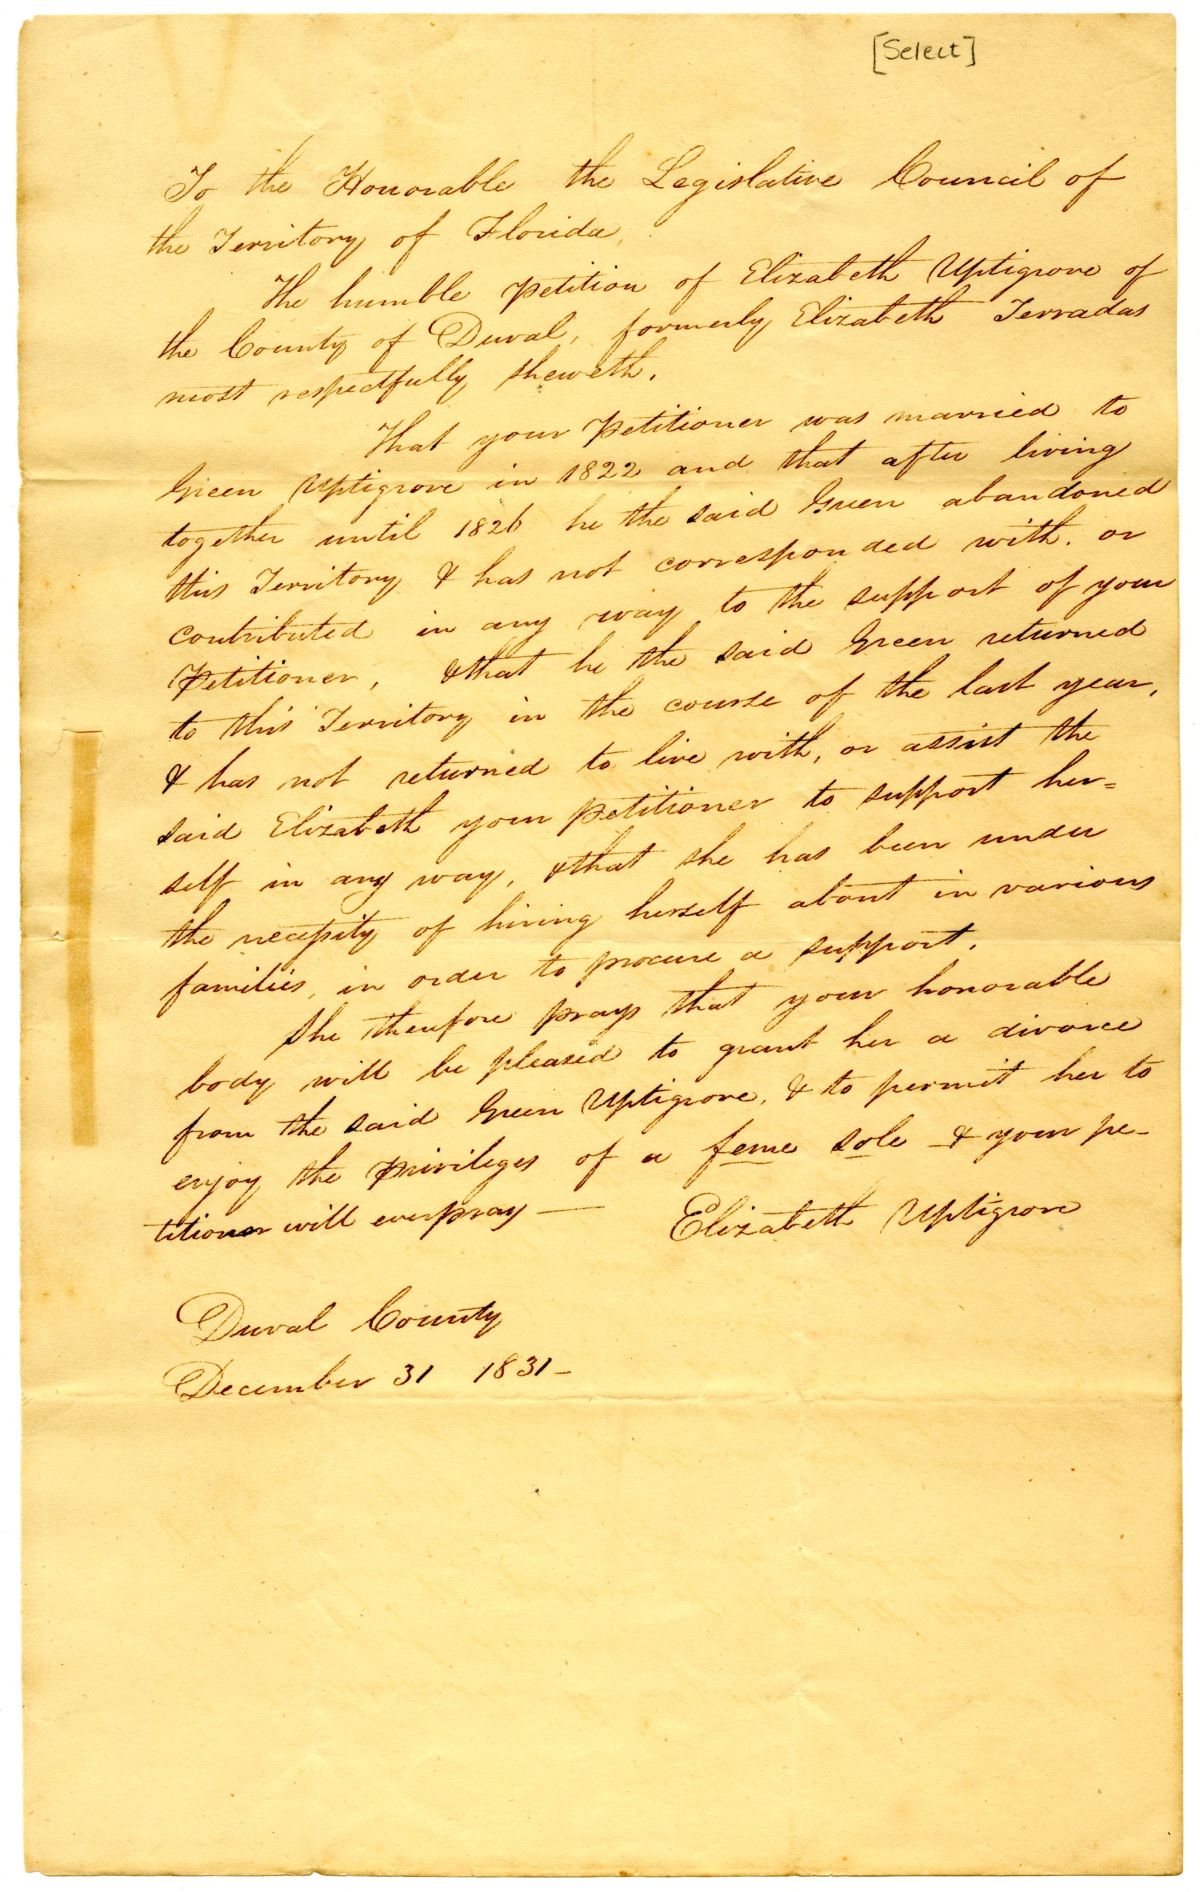 [Select]
To the Honorable the Legislative Council of
the Territory of Florida
The humble petition of Elizabeth Uptigrove of
the County of Duval, formerly Elizabeth Terradas
most respectfully sheweth.
That your Petitioner was married to
Green Uptigrove in 1822 and that after living
together until 1826 he the said Green abandoned
this Territory & has not corresponded with. or
contributed in any way to the support of your
Petitioner, & that he the said Green returned
to this Territory in the course of the last year,
& has not returned to live with, or assist the
said Elizabeth your petitioner to support her=
self in any way, & that she has been under
the necessity of hiring herself about in various
families, in order to procure a support.
She therefore prays that your honorable
body will be pleased to grant her a divorce
from the said Green Uptigrove, & to permit her to
enjoy the privileges of a feme sole - & your pe-
titioner will ever pray —
Elizabeth Uptigrove
Duval County
December 31 1831-